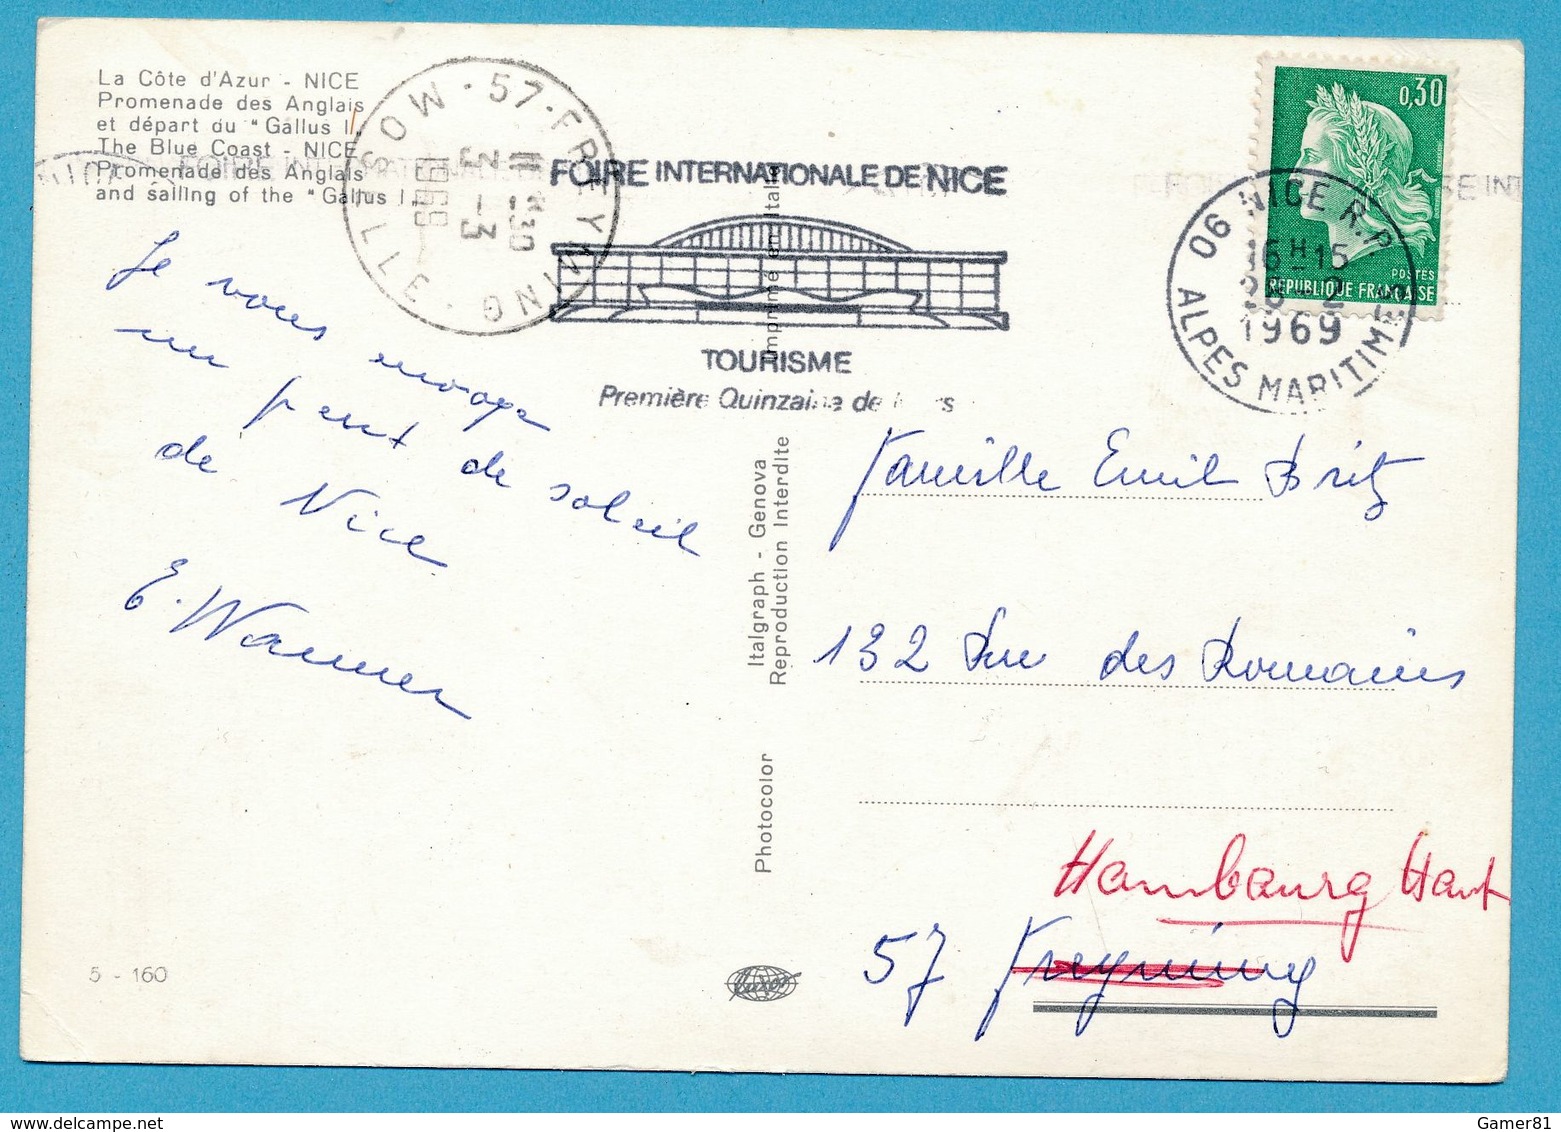 La Côte d'Azur - NICE
Promenade des Anglais
et départ du "Gallus II,
The Blue Coast - NICE
Promenade des Anglais
and sailing of the "Gallus I
57 · FREYMING · MOSELLE ·
11 H 30
3 - 3
1969
FOIRE INTERNATIONALE DE NICE
TOURISME
Première Quinzaine de
06 NICE R.P.
ALPES MARITIMES
16 H 15
1969
0,30
POSTES
REPUBLIQUE FRANÇAISE
Je vous envoye
un peut de soleil
de Nice
E. Wanner
Imprimé en Italie
Italgraph - Genova
Reproduction Interdite
Photocolor
Famille Emil Britz
132 Rue des Romains
Hombourg Haut
57 Freyming
5 - 160
Gamer81